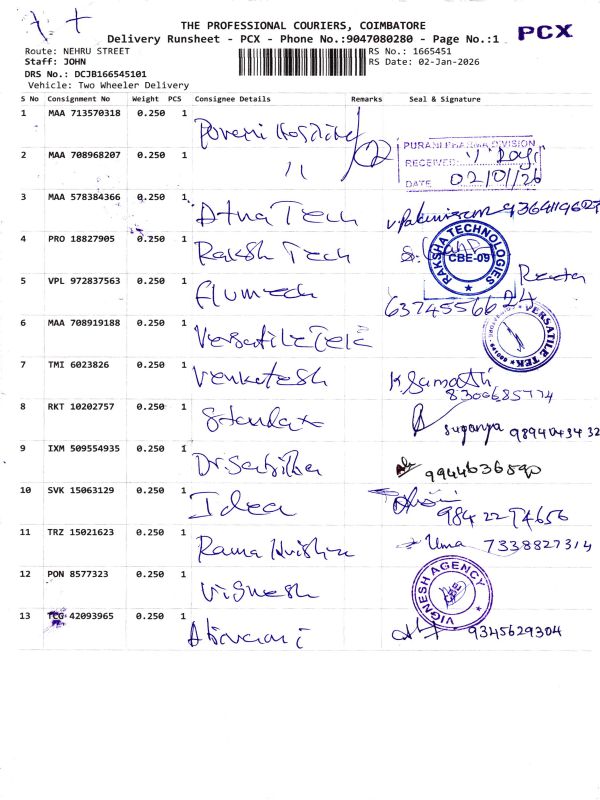 THE PROFESSIONAL COURIERS, COIMBATORE
Delivery Runsheet - PCX - Phone No.:9047080280 - Page No.:1
PCX
Route: NEHRU STREET
RS No.: 1665451
Staff: JOHN
RS Date: 02-Jan-2026
DRS No.: DCJB166545101
Vehicle: Two Wheeler Delivery
S No Consignment No Weight PCS Consignee Details Remarks Seal & Signature
1 MAA 713570318 0.250 1
2 MAA 708968207 0.250 1 11
PURANI PHARMA DIVISION
RECEIVED:
DATE 02/01/26
3 MAA 578384366 0.250 1 Atna Tech
4 PRO 18827905 0.250 1 Raksh Tech
RAKSHA TECHNOLOGIES
CBE-09
5 VPL 972837563 0.250 1
6374556624
6 MAA 708919188 0.250 1 Versatile Tek
VERSATILE TEK
7 TMI 6023826 0.250 1 Venkatesh
8300685774
8 RKT 10202757 0.250 1 suganya 9894043432
9 IXM 509554935 0.250 1 9944636890
10 SVK 15063129 0.250 1 Idea
9842274656
11 TRZ 15021623 0.250 1 Rama Krishna Uma 7338827314
12 PON 8577323 0.250 1 Vignesh
VIGNESH AGENCY
CBE
13 TCG 42093965 0.250 1 9345629304